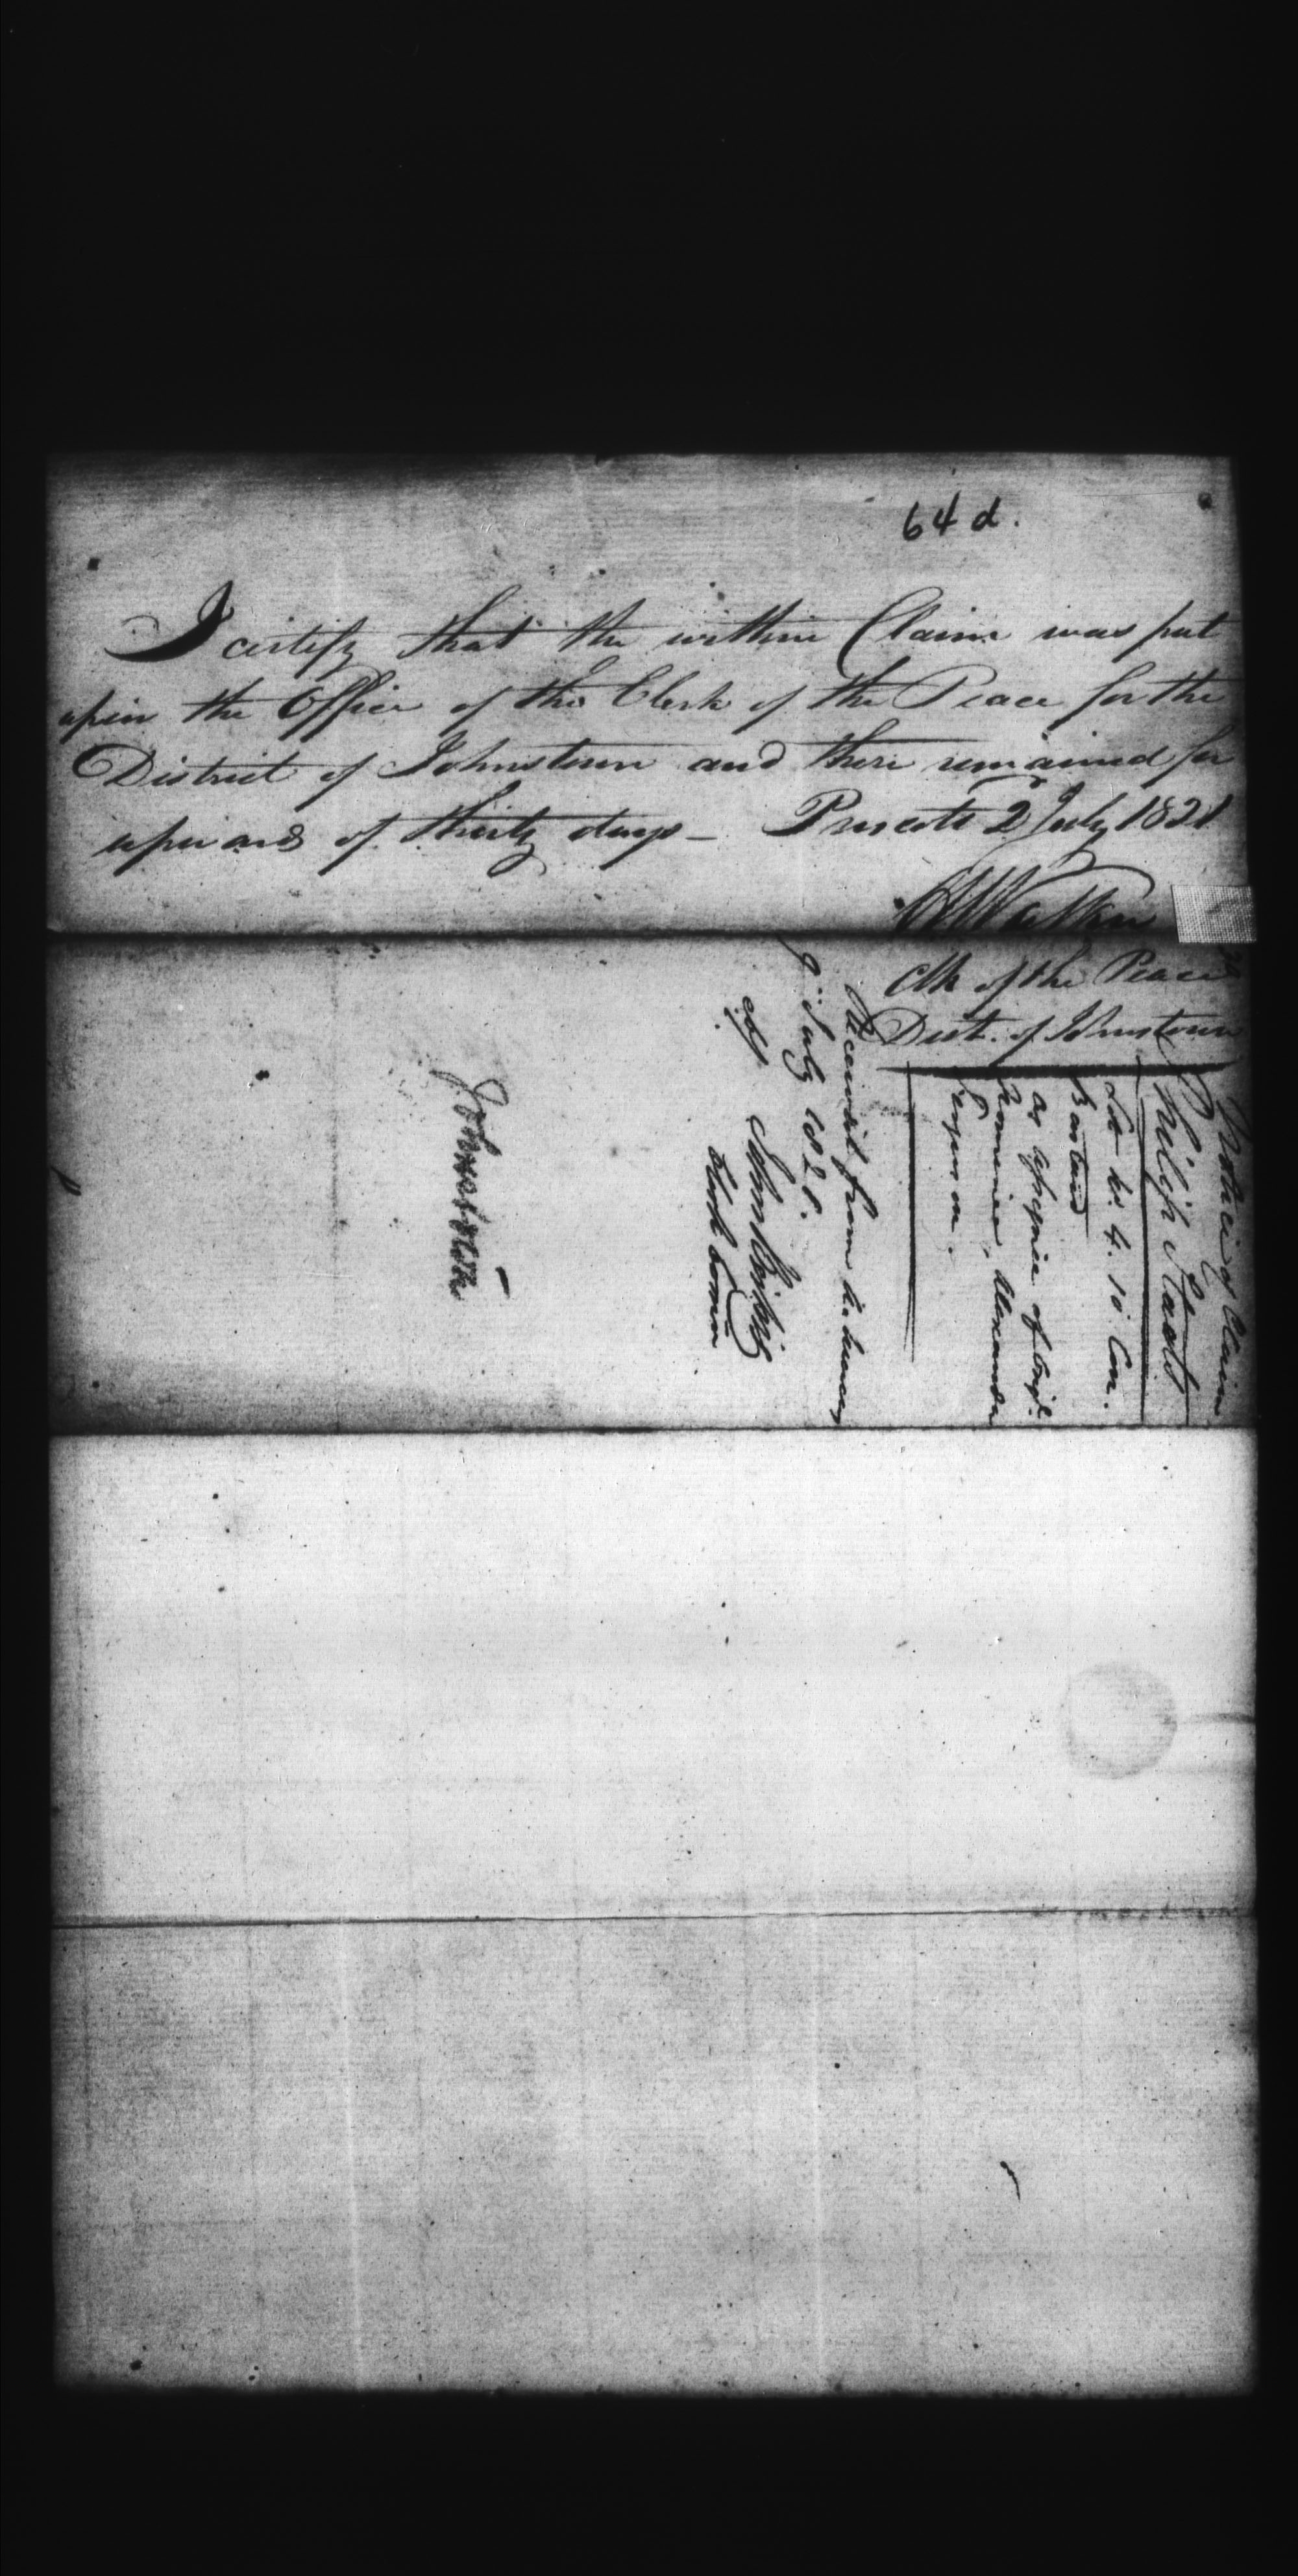 64 d.
I certify that the within Claim was put
upin the Office of the Clerk of the Peace for the
District of Johnstown and there remained for
upwards of thirty days — Prescott 2d July 1821
Clk of the Peace
Dist. of Johnstown
Notice of Claim
Philip Staats
Lot No. 4. 10 Con.
Bastard
as assignee of Origl.
Nominee, Alexander
Received from
July 1821.
John
Clerk Comrs
Johnstown